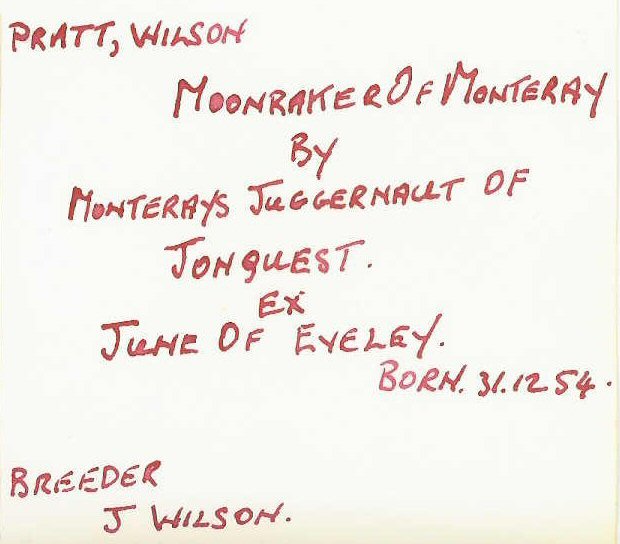 PRATT, WILSON
MOONRAKER OF MONTERAY
BY
MONTERAYS JUGGERNAULT OF
JONQUEST.
EX
JUNE OF EVELEY.
BORN. 31.12 54.
BREEDER
J WILSON.